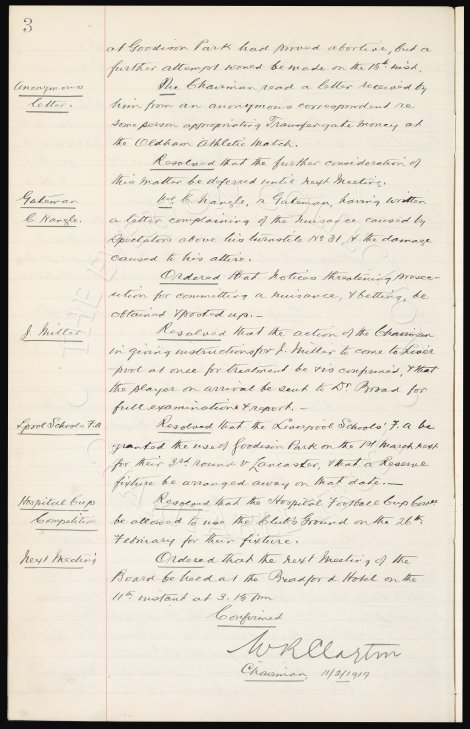 3
at Goodison Park had proved abortive, but a
further attempt would be made on the 15th inst.
Anonymous
letter.
The Chairman read a letter received by
him from an anonymous correspondent re
some person appropriating Transfer gate money at
the Oldham Athletic Match.
Resolved that the further consideration of
this matter be deferred until next Meeting.
Gateman
C. Nangle.
C. Nangle, a Gateman, having written
a letter complaining of the nuisance caused by
spectators above his turnstile No 31, & the damage
caused to his attire.
Ordered that notices threatening prosec-
ution for committing a nuisance, & betting, be
obtained & posted up.—
J. Miller
Resolved that the action of the Chairman
in giving instructions for J. Miller to come to Liver
pool at once for treatment be & is confirmed, & that
the player on arrival be sent to Dr Broad for
full examination & report.—
Lpool Schools F.A
Resolved that the Liverpool Schools' F.A be
granted the use of Goodison Park on the 1st March next
for their 3rd round v Lancaster, & that a Reserve
fixture be arranged away on that date.—
Hospital Cup
Competition
Resolved that the Hospital Football Cup Comee
be allowed to use the Club's Ground on the 26th
February for their fixture.
Next Meeting
Ordered that the next Meeting of the
Board be held at the Bradford Hotel on the
11th instant at 3.15 pm
Confirmed
W R Clayton
Chairman 11/2/1919